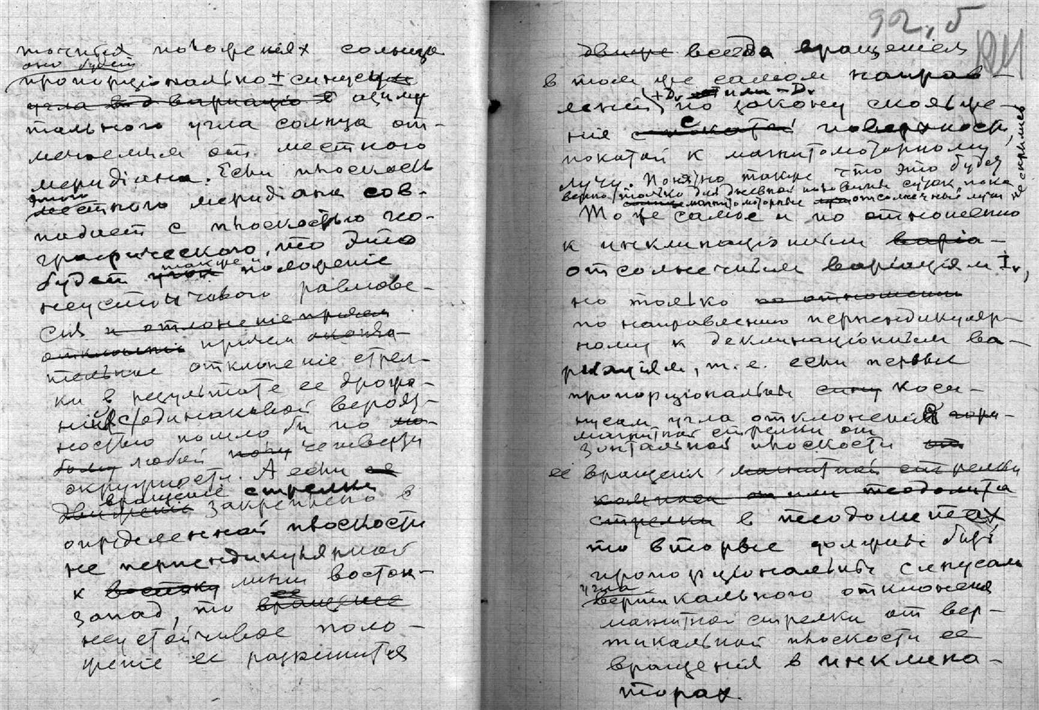 точится положениях солнца
оно будет
пропорціонально ± синусу
угла
азиму
тального угла солнца от-
мечаемая от местного
меридіана. Если плоскость
этого
местного меридіана сов-
падает с плоскостью гео-
графического, то это
будет также положеніе
неустойчивого равнове-
сия и отклоненіе причем
причем оконча-
тельное отклоненіе стрел-
ки в результате ее дрожа-
ній с одинаковой вероят-
ностью пошло бы по
любой четверти
окружности. А если
вращеніе стрелки
закреплено в
определенной плоскости
не перпендикулярной
к востоку линии восток-
запад, то вращеніе
неустойчивое поло-
жение ее разрешится
92, б
всегда вращением
в том же самом направ-
лении +Dv или -Dv
по закону скольже-
ния с поверхности,
покатой к магнитомоторному
лучу. Понятно также что это будет
верно
То же самое и по отношению
к инклинаціонным
отсолнечным варіаціям Iv,
но только по отношению
по направлению перпендикуляр-
ному к деклинаціонным ва-
ріаціям, т.е. если первые
пропорціональны коси-
нусам угла отклонений
магнитной стрелки от
зонтальной плоскости
ее вращения магнитной стрелки
компаса или теодолита
стрелки в теодолитах
то вторые должны быть
пропорціональны синусам
угла
вертикального отклонения
магнитной стрелки от вер-
тикальной плоскости ее
вращения в инклина-
торах.